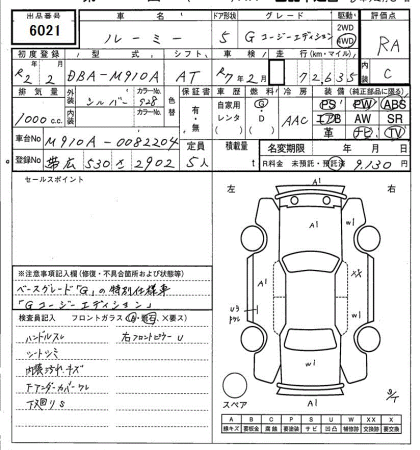 出品番号 6021
車名 ルーミー
ドア形状 5
グレード G コージーエディション
駆動 2WD 4WD
評価点 RA
内装 C
初度登録 R2 2
型式 DBA-M910A
シフト AT
車検 R7年2月
走行(km・マイル) 72635
排気量 1000 c.c.
外装 シルバー カラーNo. 928
内装 カラーNo.
色替
保証書 有・無
車歴 自家用 レンタ ( )
燃料 G・D
冷房 AAC
装備(純正部品に限る)
PS PW ABS
エアB AW SR
革 ナビ TV
車台No M910A-0082204
登録No 帯広 530 さ 2902
定員 5人
積載量 t
名変期限 年 月 日
R料金 未預託・預託済 9,130 円
セールスポイント
※注意事項記入欄(修復・不具合箇所および状態等)
ベースグレード「G」の特別仕様車
「Gコージーエディション」
検査員記入 フロントガラス(A・飛石・X要ス)
ハンドルスレ
シートシミ
内装汚れ・キズ
F.アンダーカバーワレ
下廻りS
右フロントピラーU
左
右
A1
A1
A1
XX
W1
W1
W1
A1
スペア
A B C P S U W X XX
線キズ 要板金 腐食 要塗装 サビ 凹凸 補修跡 要交換 交換済